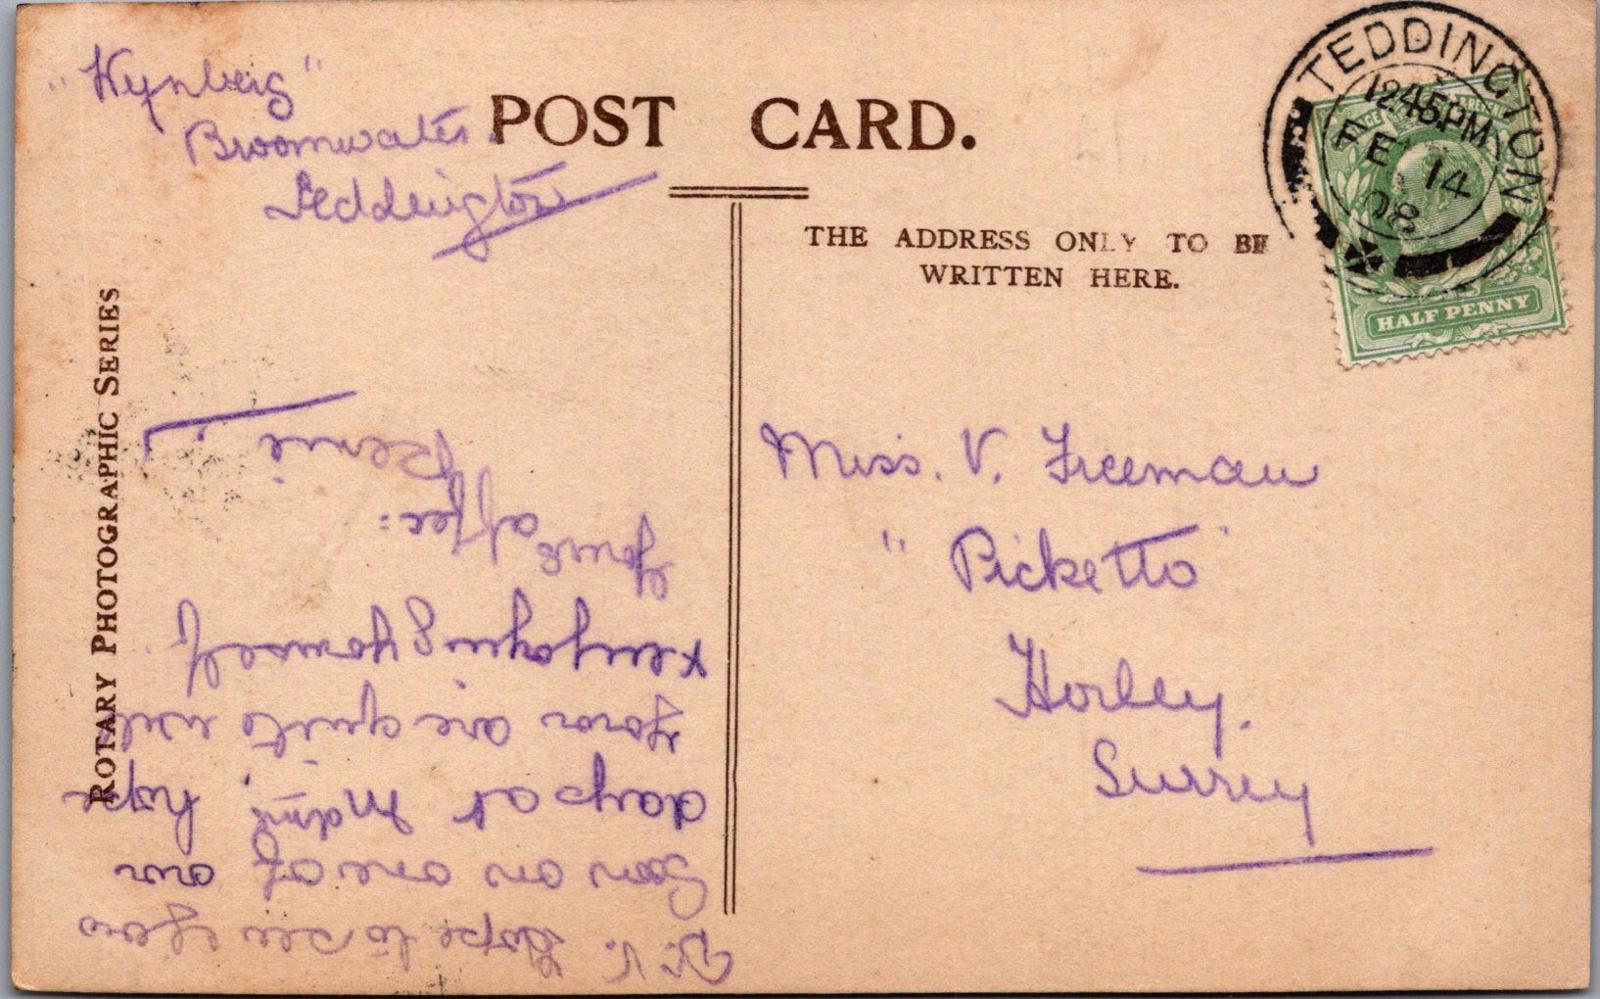 "Wynberg"
Broomwater.
Teddington
POST CARD.
THE ADDRESS ONLY TO BE
WRITTEN HERE.
TEDDINGTON
12 45PM
FE 14
08
HALF PENNY
Miss. V. Freeman
"Picketto"
Horley.
Surrey
ROTARY PHOTOGRAPHIC SERIES
D. V. Hope to see you
soon on one of our
days at hope
you are quite well
x enjoying yourself.
Yours affec:
Renie